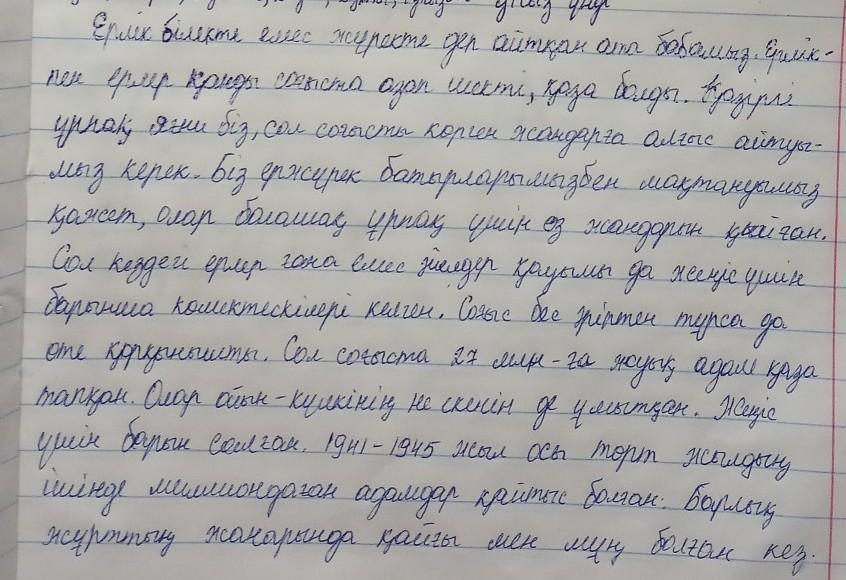 Ерлік білекте емес жүректе деп айтқан ата бабамыз. Ерлік-
пен ерлер қанды соғыста азап шекті, қаза болды. Қазіргі
ұрпақ, яғни біз, сол соғысты көрген жандарға алғыс айтуы-
мыз керек. Біз ержүрек батырларымызбен мақтануымыз
қажет, олар болашақ ұрпақ үшін өз жандарын қыйған.
Сол кездегі ерлер ғана емес әйелдер қауымы да жеңіс үшін
барынша көмектескілері келген. Соғыс бес әріптен тұрса да
өте қорқынышты. Сол соғыста 27 млн-ға жуық адам қаза
тапқан. Олар ойын-күлкінің не екенін де ұмытқан. Жеңіс
үшін барын салған. 1941-1945 жыл осы төрт жылдың
ішінде миллиондаған адамдар қайтыс болған. Барлық
жұрттың жанарында қайғы мен мұң болған кез.